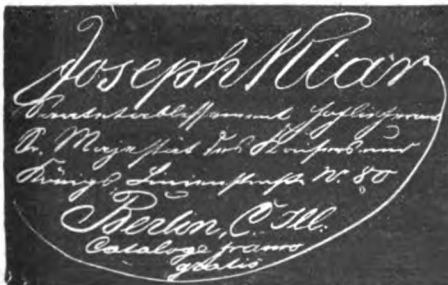 Joseph Klar
Samenetablissement Hoflieferant
Sr. Majestät des Kaisers und
Königs Linienstraße N. 80
Berlin, C. Ill.
Cataloge franco
gratis